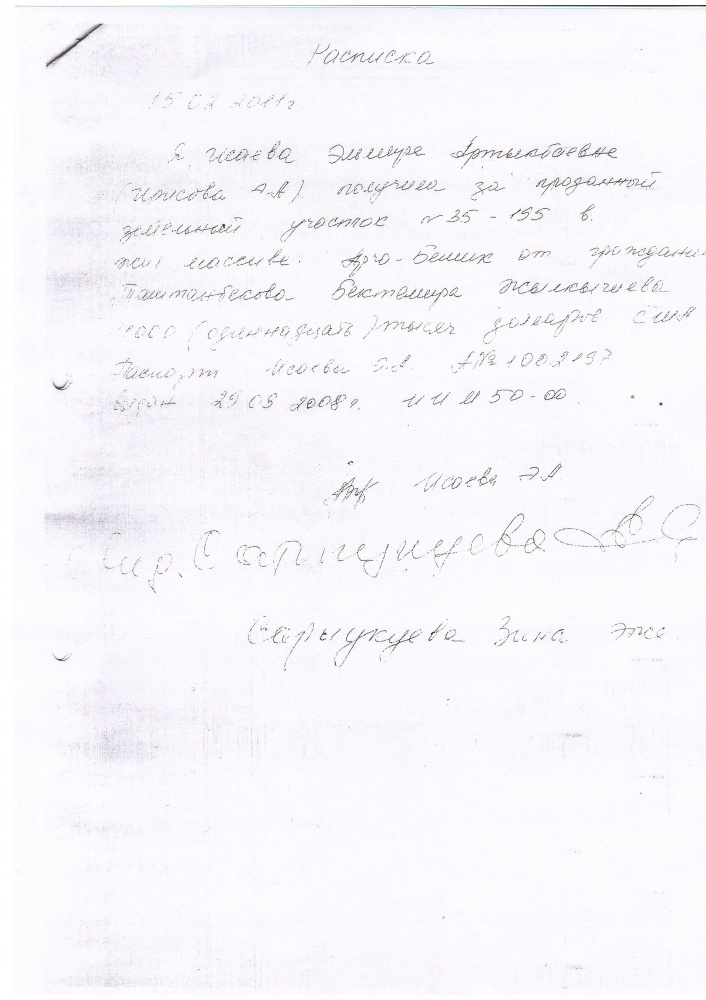 Расписка
15 02 2011г.
Я Исаева Эльмира Артыкбаевна
(Ирисова А.А) получила за проданный
земельный участок № 35-195 в
жил массиве. Арча-Бешик от граждани
Паштанбекова Бектемира
11000 (одиннадцать) тысяч долларов США
Паспорт Исаева Э.А. AN 1002197
выдан 29 09 2008г. ИИМ 50-00.
Исаева Э.А.
Сарыукуева
Сарыукуева Зина эже